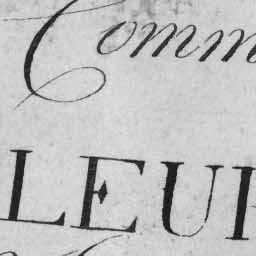 Comm
LEUR